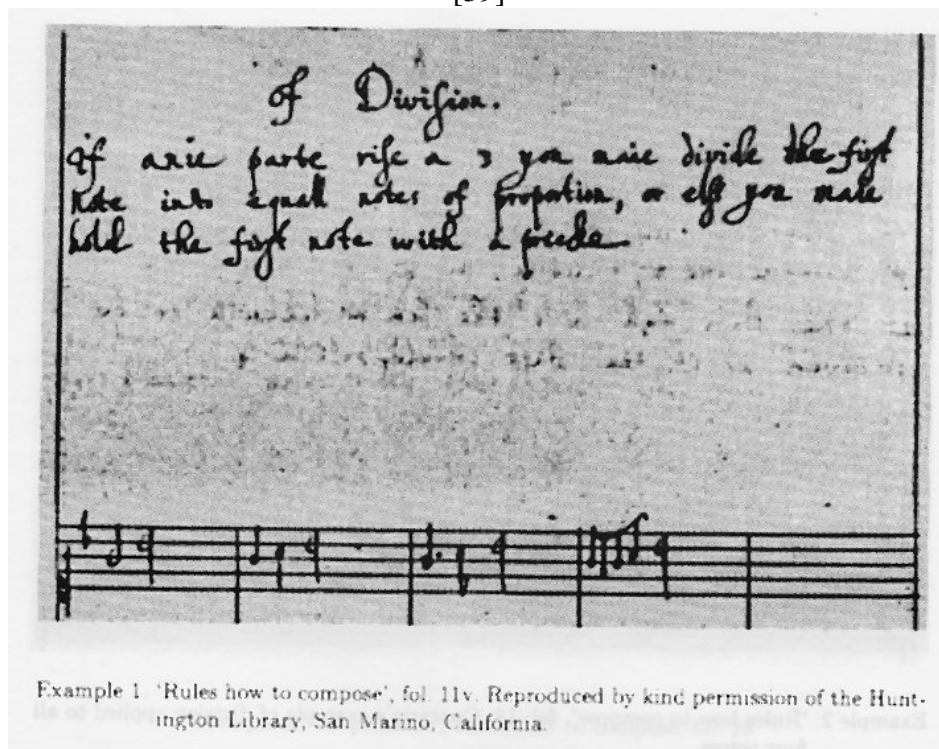 [39]
of Division.
If anie parte rise a 3 you maie divide the first
note into equall notes of proportion, or else you maie
hold the first note with a pricke.
Example 1 'Rules how to compose', fol. 11v. Reproduced by kind permission of the Hunt-
ington Library, San Marino, California.